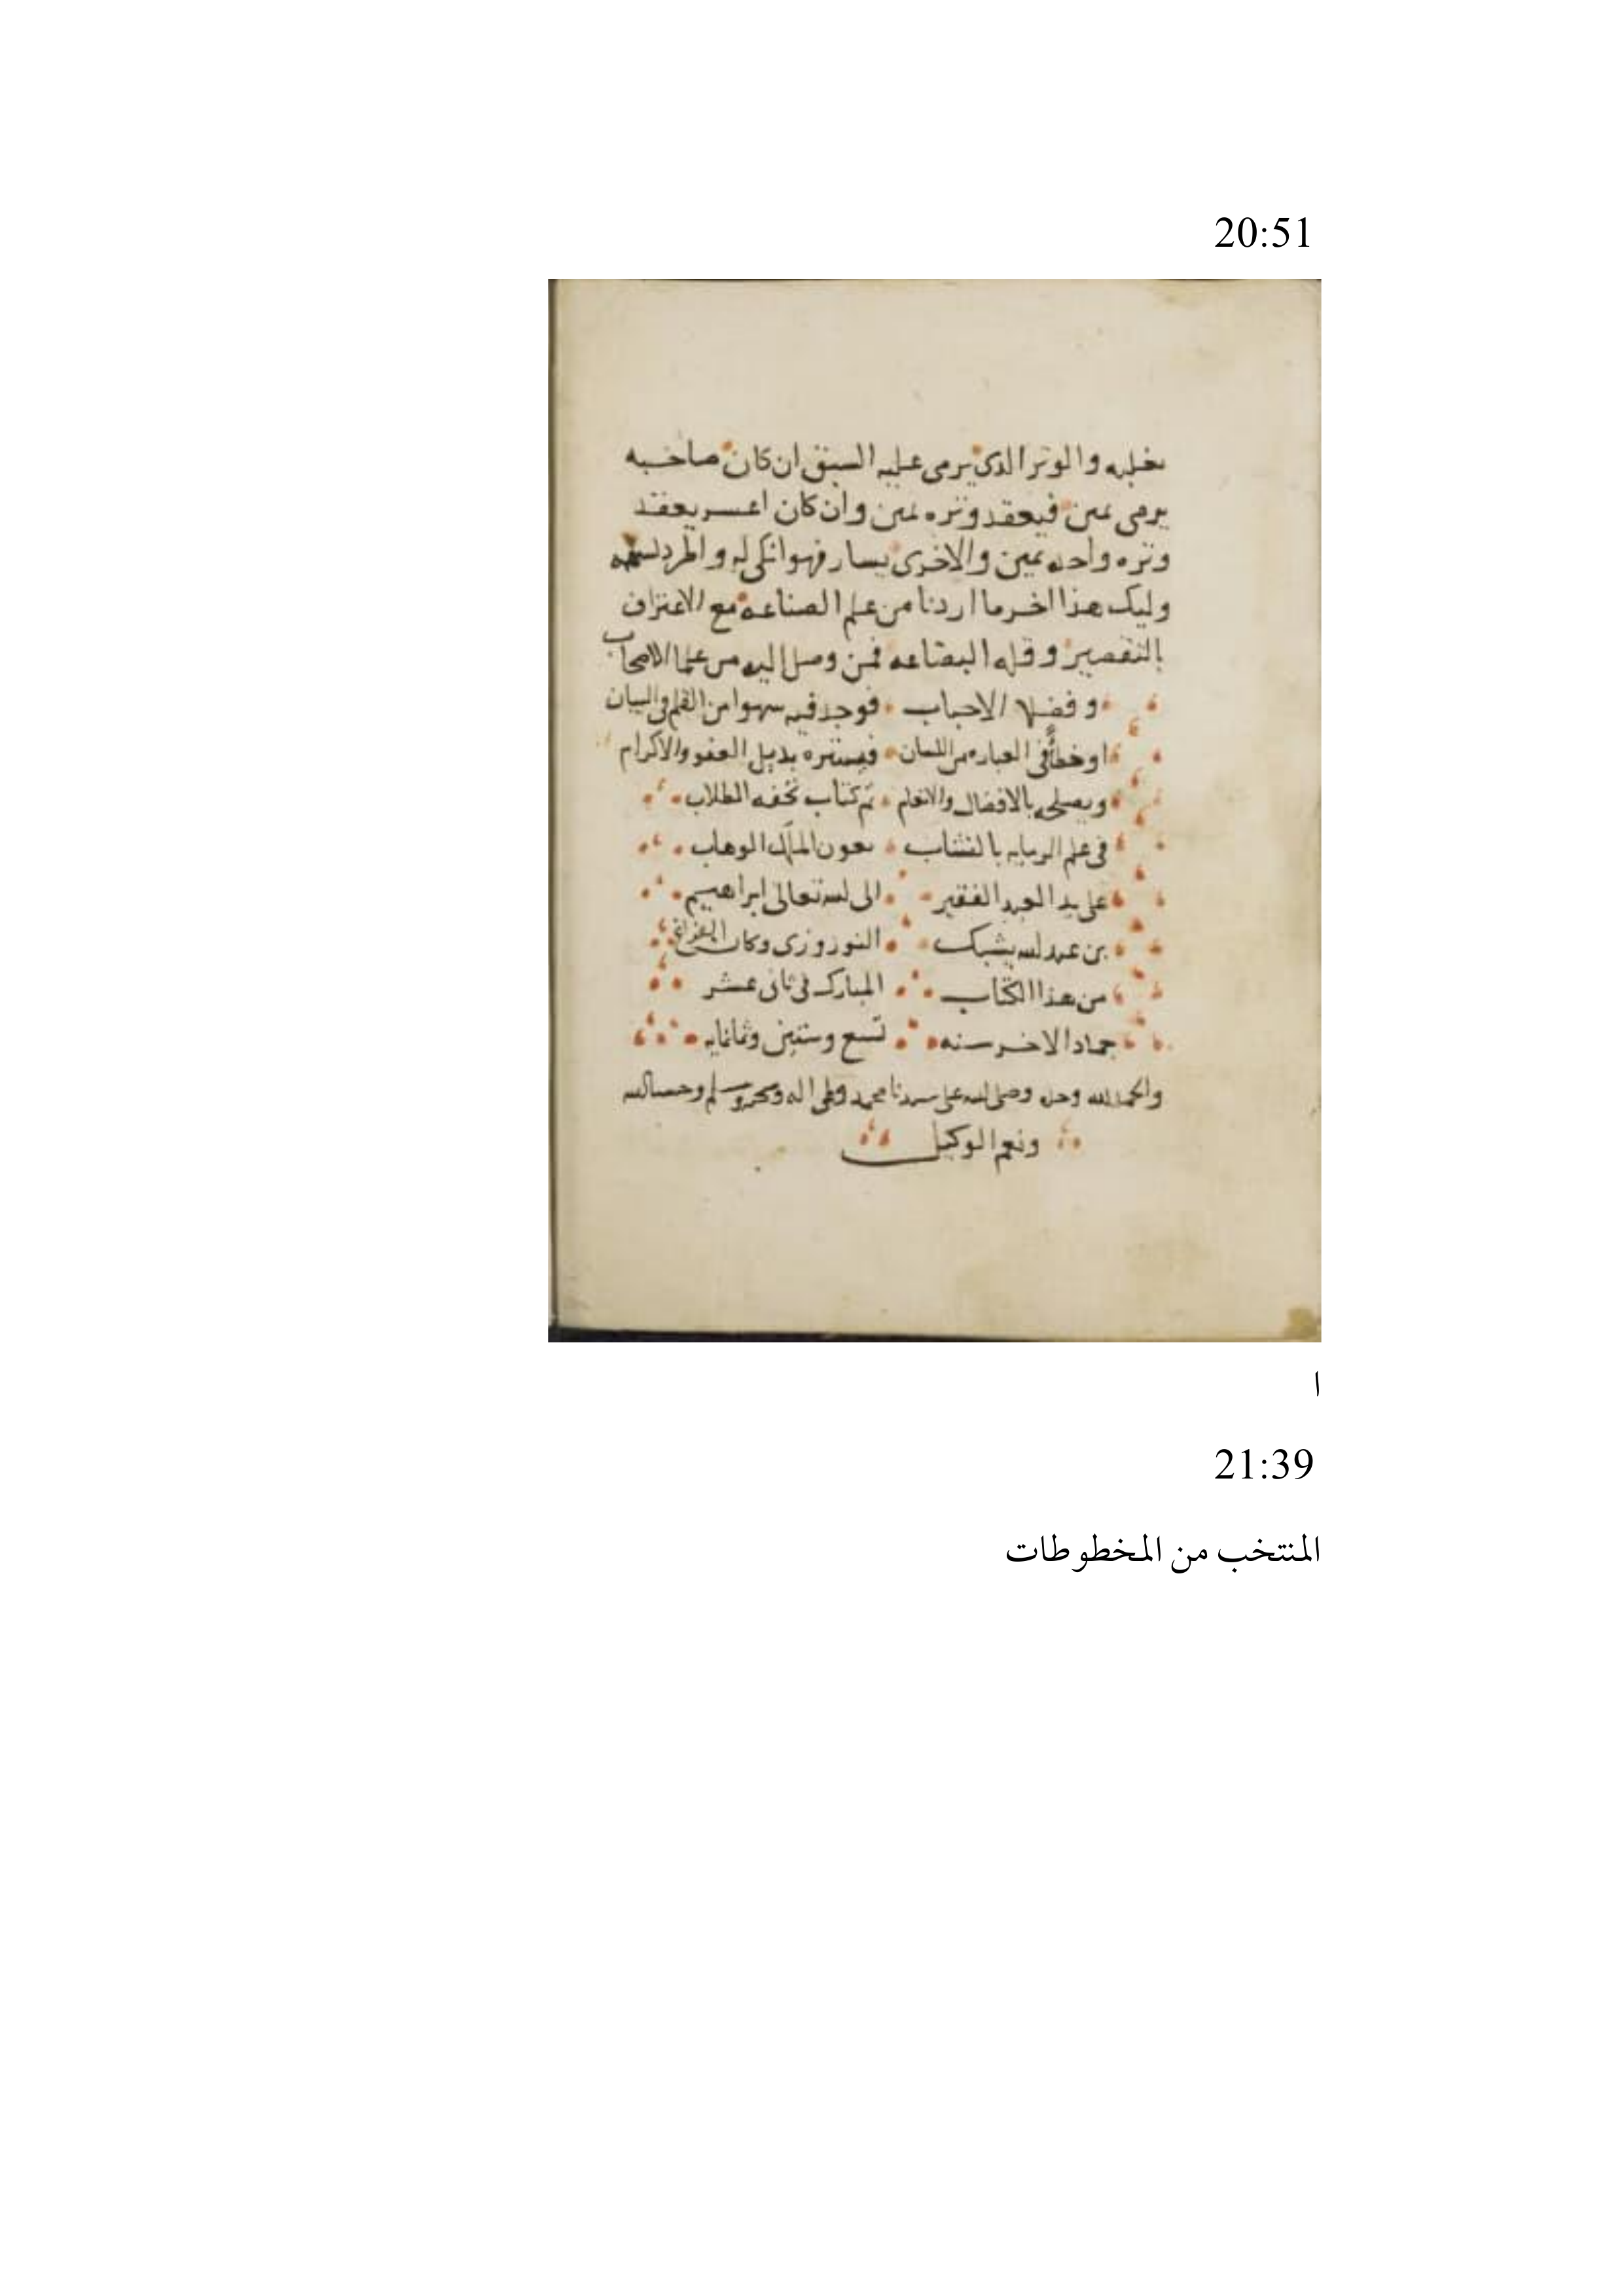 20:51
والوتر الدي يرمى عليه السبق ان كان صاحبه
يرمى يمين فيعقد وتره يمين وان كان اعسر يعقد
وتره واحده يمين والاخرى يسار فهو انكى له واطرد لسهمه
وليكن هذا اخر ما اردنا من علم الصناعه مع الاعتراف
بالتقصير وقله البضاعه فمن وصل اليه من علما الاصحاب
وفضلا الاحباب فوجد فيه سهوا من القلم والبيان
او خطأً فى العباره من اللسان فيستره بديل العفو والاكرام
ويصلحه بالافضال والانعام تم كتاب تحفه الطلاب
فى علم الرمايه بالنشاب بعون الملك الوهاب
على يد العبد الفقير الى الله تعالى ابراهيم
بن عبد الله يشبك النوروزى وكان الفراغ
من هذا الكتاب المبارك فى ثانى عشر
جماد الاخر سنه تسع وستين وثمانمايه
والحمد لله وحده وصلى الله على سيدنا محمد وعلى اله وصحبه وسلم وحسبنا الله
ونعم الوكيل
ا
21:39
المنتخب من المخطوطات